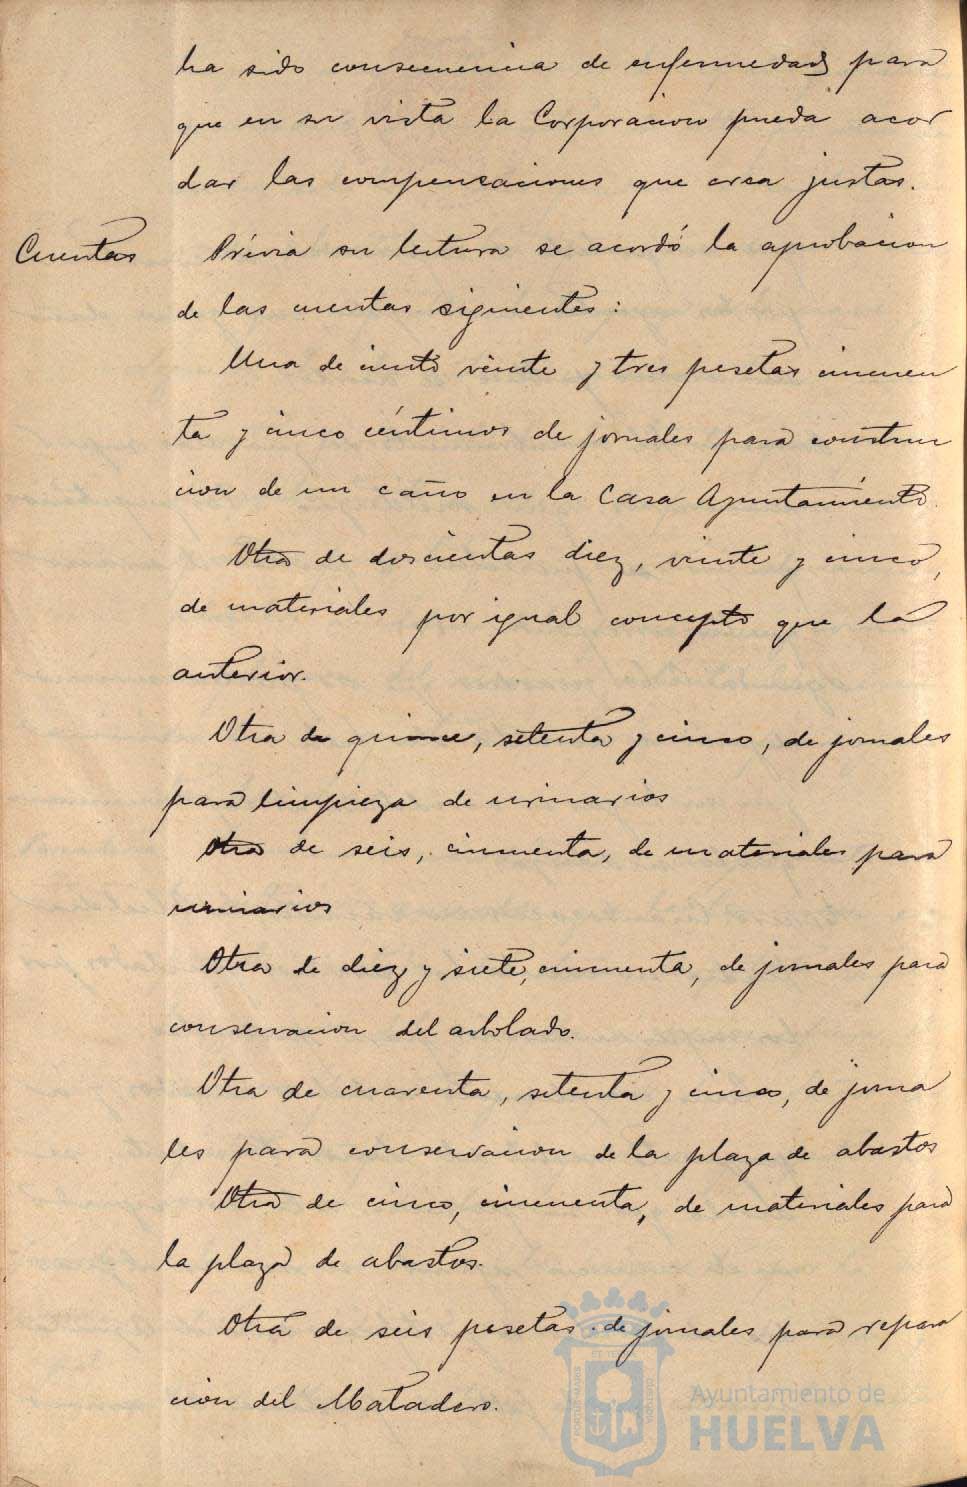 ha sido consecuencia de enfermedad, para
que en su vista la Corporacion pueda acor
dar las compensaciones que crea justas.
Cuentas
Prévia su lectura se acordó la aprobacion
de las cuentas siguientes:
Una de ciento veinte y tres pesetas cincuen
ta y cinco céntimos de jornales para construc
cion de un caño en la Casa Ayuntamiento.
Otra de doscientas diez, veinte y cinco,
de materiales por igual concepto que la
anterior.
Otra de quince, setenta y cinco, de jornales
para limpieza de urinarios
Otra de seis, cincuenta, de materiales para
urinarios
Otra de diez y siete, cincuenta, de jornales para
conservacion del arbolado.
Otra de cuarenta, setenta y cinco, de jorna
les para conservacion de la plaza de abastos
Otra de cinco, cincuenta, de materiales para
la plaza de abastos.
Otra de seis pesetas de jornales para repara
cion del Matadero.
Ayuntamiento de
HUELVA